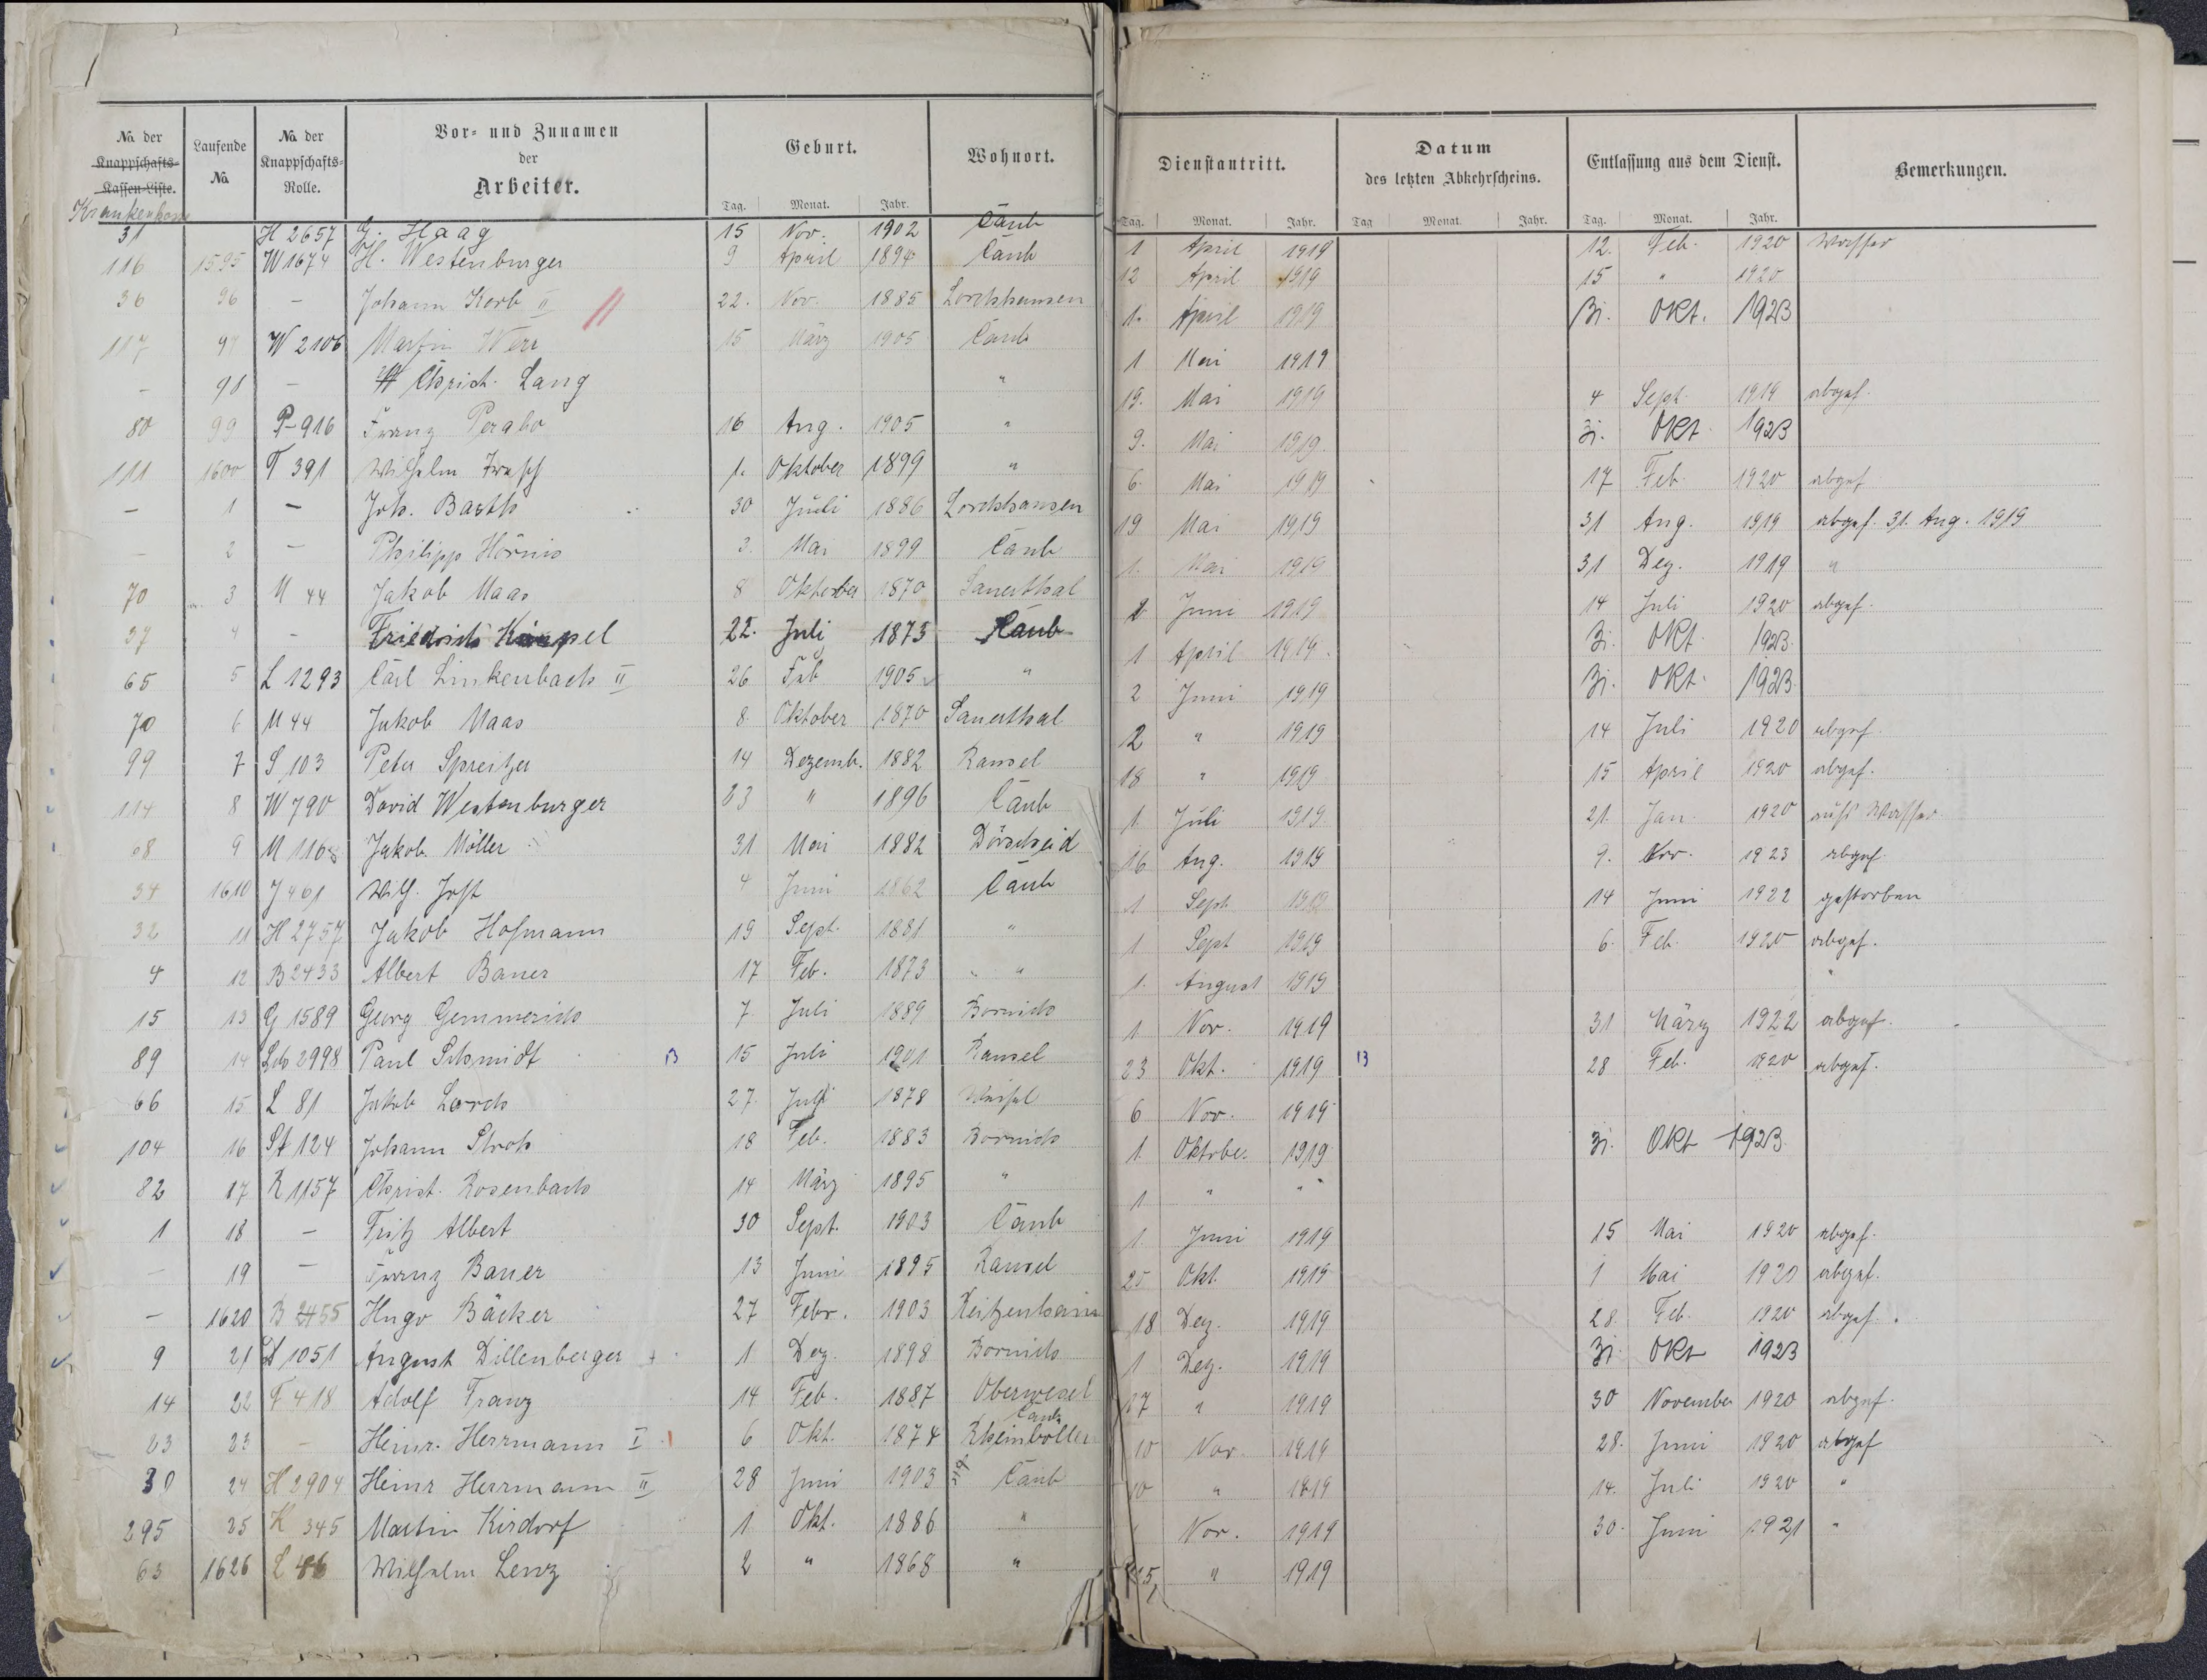 No. der Knappschafts-Kassen-Liste. Laufende No. No. der Knappschafts-Rolle. Vor- und Zunamen der Arbeiter. Geburt. Wohnort. Dienstantritt. Datum des letzten Abkehrscheins. Entlassung aus dem Dienst. Bemerkungen.
Tag. Monat. Jahr. Tag. Monat. Jahr. Tag Monat. Jahr. Tag. Monat. Jahr.
31 H 2657 G. Haag 15 Nov. 1902 Caub 1 April 1919 12. Feb. 1920 Wasser
116 1595 W 1674 H. Westenburger 9 April 1894 Caub 12 April 1919 15 " 1920
36 96 – Johann Korb II 22. Nov. 1885 Lorchhausen 1. April 1919 31. Okt. 1923
117 97 W 2106 Martin Werr 15 März 1905 Caub 1 Mai 1919
– 98 – Christ. Lang " 19. Mai 1919 4 Sept. 1919 abgef.
80 99 P-916 Franz Perabo 16 Aug. 1905 " 9. Mai 1919. 31. Okt. 1923
111 1600 T 391 Wilhelm 1. Oktober 1899 " 6. Mai 1919 17 Feb. 1920 abgef
– 1 – Joh. Barth 30 Juli 1886 Lorchhausen 19 Mai 1919 31 Aug. 1919 abgef. 31. Aug. 1919
– 2 – Philipp 3. Mai 1899 Caub 1. Mai 1919 31 Dez. 1919 "
70 3 M 44 Jakob Maas 8 Oktober 1870 Sauerthal 2 Juni 1919 14 Juli 1920 abgef.
37 4 – Friedrich 22. Juli 1873 Caub 1 April 1919. 31. Okt. 1923.
65 5 L 1293 Carl Linkenbach II 26 Feb 1905 " 2 Juni 1919 31. Okt. 1923.
70 6 M 44 Jakob Maas 8. Oktober 1870 Sauerthal 2 " 1919 14 Juli 1920 abgef.
99 7 S 103 Peter Spreitzer 14 Dezemb. 1882 Ransel 18 " 1919 15 April 1920 abgef.
114 8 W 790 David Westenburger 23 " 1896 Caub 1. Juli 1919. 21. Jan. 1920 aufs Wasser
68 9 M 1168 Jakob Möller 31 Mai 1882 Dörscheid 16 Aug. 1919 9. Nov. 1923 abgef.
34 1610 J 461 Wilh. Jost 4 Juni 1862 Caub 1 Sept 1919 14 Juni 1922 gestorben
32 11 H 2757 Jakob Hofmann 19 Sept. 1881 " 1 Sept 1919 6. Feb. 1920 abgef.
4 12 B 2433 Albert Bauer 17 Feb. 1873 " " 1. August 1919 "
15 13 G 1589 Georg Gemmerich 7. Juli 1889 Bornich 1 Nov. 1919 31 März 1922 abgef.
89 14 Sch 2998 Paul Schmidt B 15 Juli 1901 Ransel 23 Okt. 1919 B 28 Feb. 1920 abgef.
66 15 L 81 Jakob Lorch 27. Juli 1878 Weisel 6 Nov. 1919
104 16 St 124 Johann Stroh 18 Feb. 1883 Bornich 1. Oktober 1919 31. Okt 1923
82 17 R 1157 Christ. Rosenbach 14 März 1895 " 1. " "
1 18 – Fritz Albert 30 Sept. 1903 Caub 1. Juni 1919 15 Mai 1920 abgef.
– 19 – Franz Bauer 13 Juni 1895 Ransel 25 Okt. 1919 1 Mai 1920 abgef.
– 1620 B 2455 Hugo Bäcker 27 Febr. 1903 Reitzenhain 18 Dez. 1919 28. Feb. 1920 abgef.
9 21 D 1051 August Dillenberger 1 Dez. 1898 Bornich 1 Dez. 1919 31. Okt 1923
14 22 F 418 Adolf Franz 14 Feb. 1887 Oberwesel 27 " 1919 30 November 1920 abgef.
23 23 – Heinr. Herrmann I 6 Okt. 1874 Caub Rheinböllen 10 Nov. 1919 28. Juni 1920 abgef
30 24 H 2904 Heinr Herrmann II 28 Juni 1903 Caub 10 " 1919 14. Juli 1920 "
295 25 K 345 Martin Kirdorf 1 Okt. 1886 " Nov. 1919 30. Juni 1921 "
63 1626 L 46 Wilhelm Lenz 2 " 1868 " " 1919